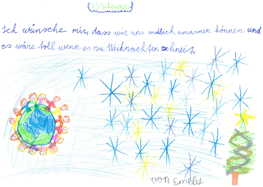 Ich wünsche mir, dass wir uns endlich umarmen können und
es wäre toll wenn es zu Weihnachten schneit.
von Emelie